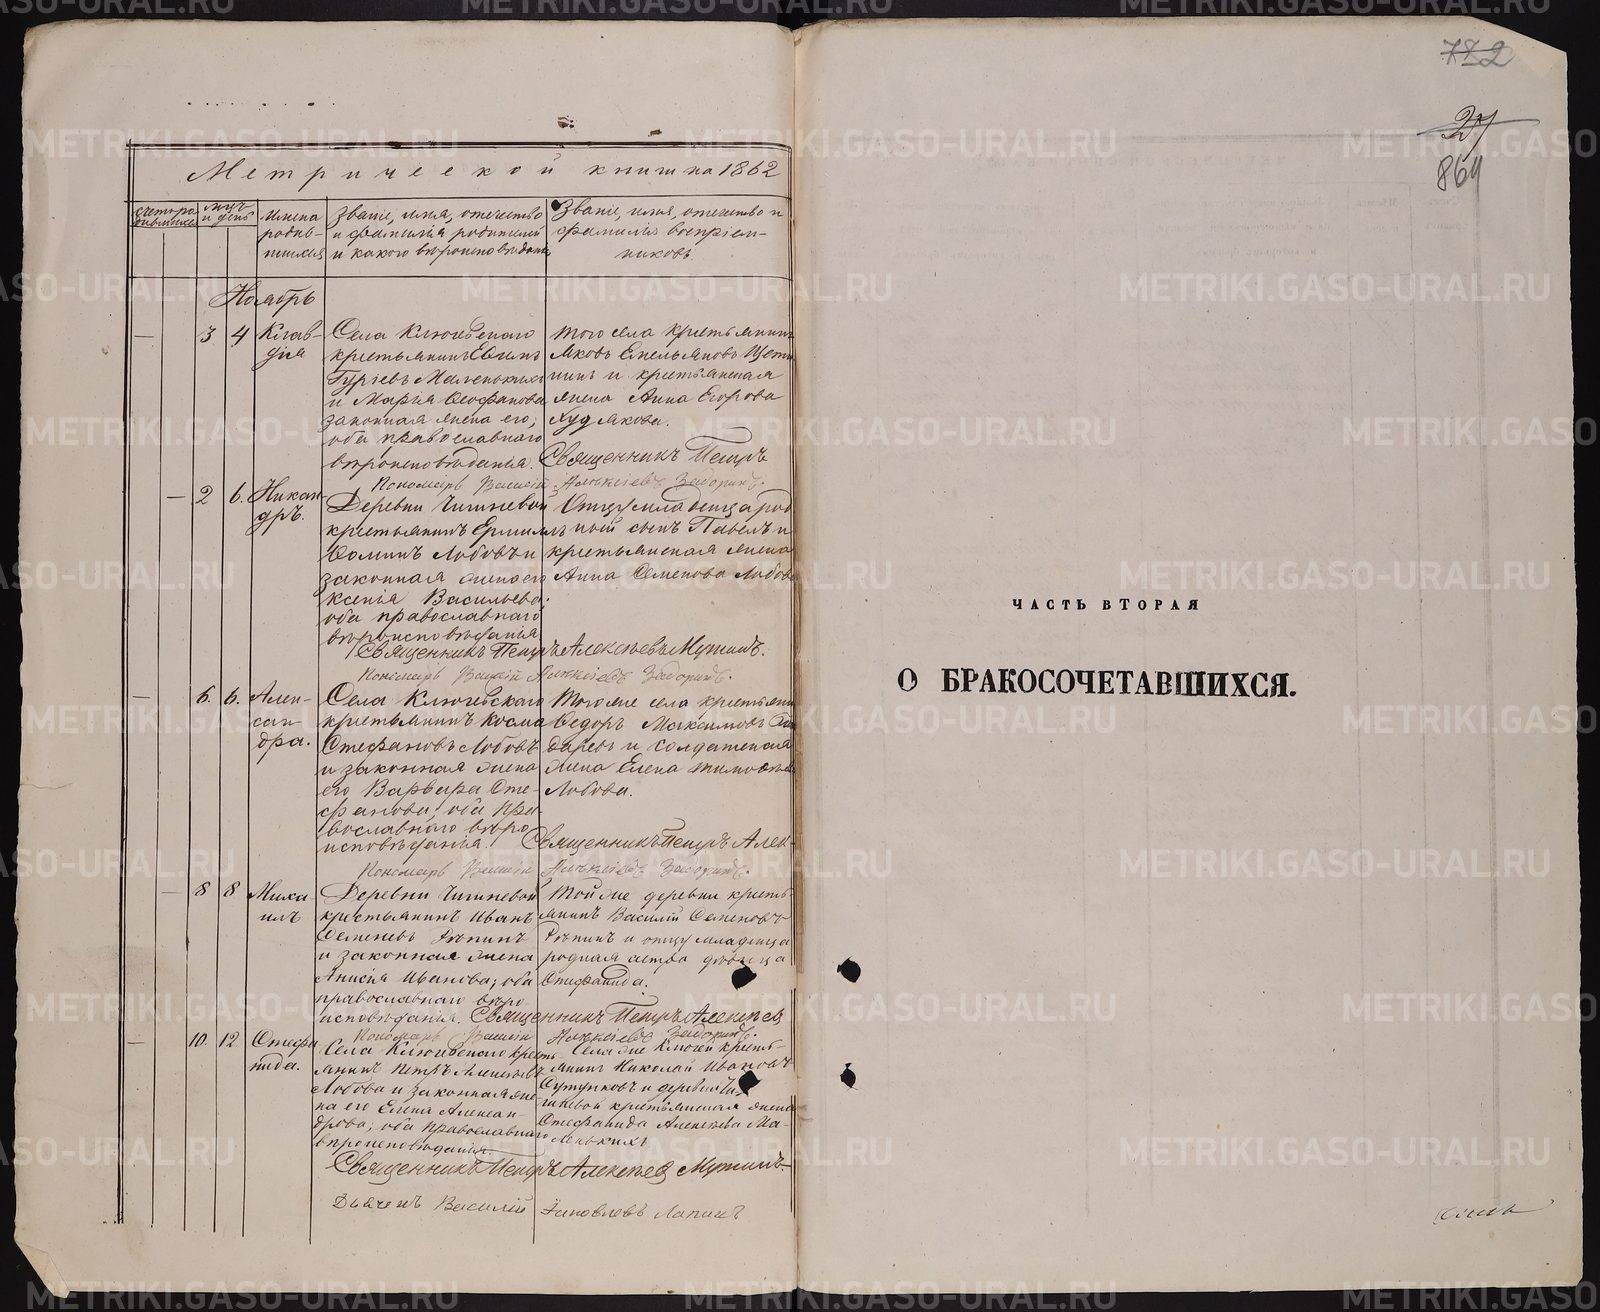 Метрической книги на 1862
счетъ ро-
дившихся
мцъ
и день
Имена
родив-
шихся
Званіе, имя, отечество
и фамилія родителей
и какого вѣроисповѣданія
Званіе, имя, отечество и
фамилія воспріем-
никовъ
Ноябрь
3 4 Клав-
дія
Села Ключевскаго
крестьянинъ Евѳимъ
Гурьевъ Маленькихъ
и Марѳа Ѳеофанова
законная жена его,
оба православнаго
вѣроисповѣданія.
того села крестьянинъ
Яковъ Емельяновъ Щети
нинъ и крестьянская
жена Анна Егорова
Худякова.
Священникъ Петръ
Пономарь Василій Алексіевъ
2 6. Никан-
дръ.
Деревни Чишневой
крестьянинъ Ермилъ
Ѳоминъ Лобовъ и
законная жена его
Ксенія Васильева;
оба православнаго
вѣроисповѣданія
Отцу младенца род
ный сынъ Павелъ и
крестьянская жена
Анна Семенова Лобова
Священникъ Петръ Алексѣевъ
Пономарь Василій Алексіевъ
6. 6. Алек-
сан-
дра.
Села Ключевскаго
крестьянинъ Косма
Стефановъ Лобовъ
и законная жена
его Варвара Сте-
фанова; оба пра-
вославнаго вѣро-
исповѣданія
Того же села крестьянинъ
Ѳедоръ Максимовъ
и солдатская
жена Елена Тимоѳѣева
Лобова.
Священникъ Петръ Алек-
Пономарь Василій Алексіевъ
8 8 Миха-
илъ
Деревни Чишневой
крестьянинъ Иванъ
Семеновъ Рѣпинъ
и законная жена
Анисія Иванова; оба
православнаго вѣро-
исповѣданія.
Той же деревни кресть
янинъ Василій Семеновъ
Рѣпинъ и отцу младенца
родная сестра дѣвица
Стефанида.
Священникъ Петръ Алексѣев
Пономарь Василій Алексіевъ
10. 12 Стефа
нида.
Села Ключевскаго кресть-
янинъ Петръ Алексѣевъ
Лобова и законная же-
на его Елена Алексан-
дрова; оба православнаго
вѣроисповѣданія.
Села же Ключей кресть-
янинъ Николай Ивановъ
Сутунковъ и деревни Чи-
шневой крестьянская жена
Стефанида Алексѣева Ма-
ленькихъ
Священникъ Петръ Алексѣев
Дьячекъ Василій Яковлевъ Лапинъ
772
27
864
ЧАСТЬ ВТОРАЯ
О БРАКОСОЧЕТАВШИХСЯ.
METRIKI.GASO-URAL.RU